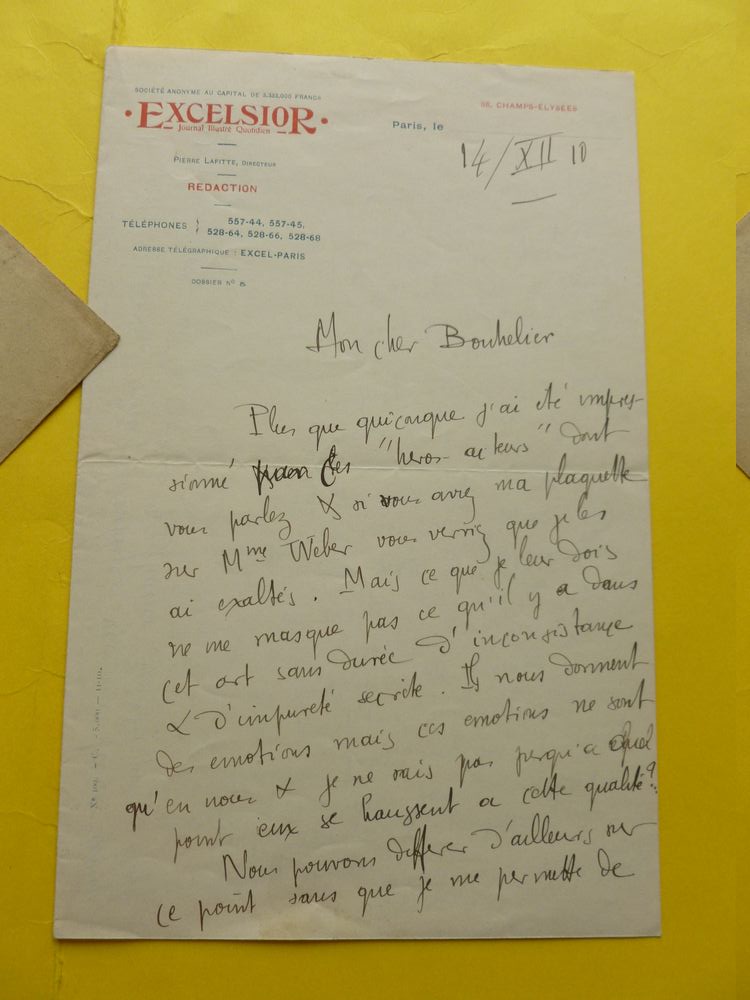 SOCIÉTÉ ANONYME AU CAPITAL DE 3.333.000 FRANCS
• EXCELSIOR •
Journal Illustré Quotidien
PIERRE LAFITTE, DIRECTEUR
REDACTION
TÉLÉPHONES } 557-44, 557-45,
528-64, 528-66, 528-68
ADRESSE TÉLÉGRAPHIQUE : EXCEL-PARIS
DOSSIER No
88, CHAMPS-ÉLYSÉES
Paris, le
14/XII 10
Mon cher Bouhelier
Plus que quiconque j'ai été impres-
sionné par les "heros-acteurs" dont
vous parlez & si vous aviez ma plaquette
sur Mme Weber vous verriez que je les
ai exaltés. Mais ce que je leur dois
ne me masque pas ce qu'il y a dans
cet art sans durée d'inconsistance
& d'impureté secrète. Ils nous donnent
des emotions mais ces emotions ne sont
qu'en nous & je ne sais pas jusqu'a quel
point eux se haussent a cette qualité?
Nous pouvons differer d'ailleurs sur
ce point sans que je me permette de